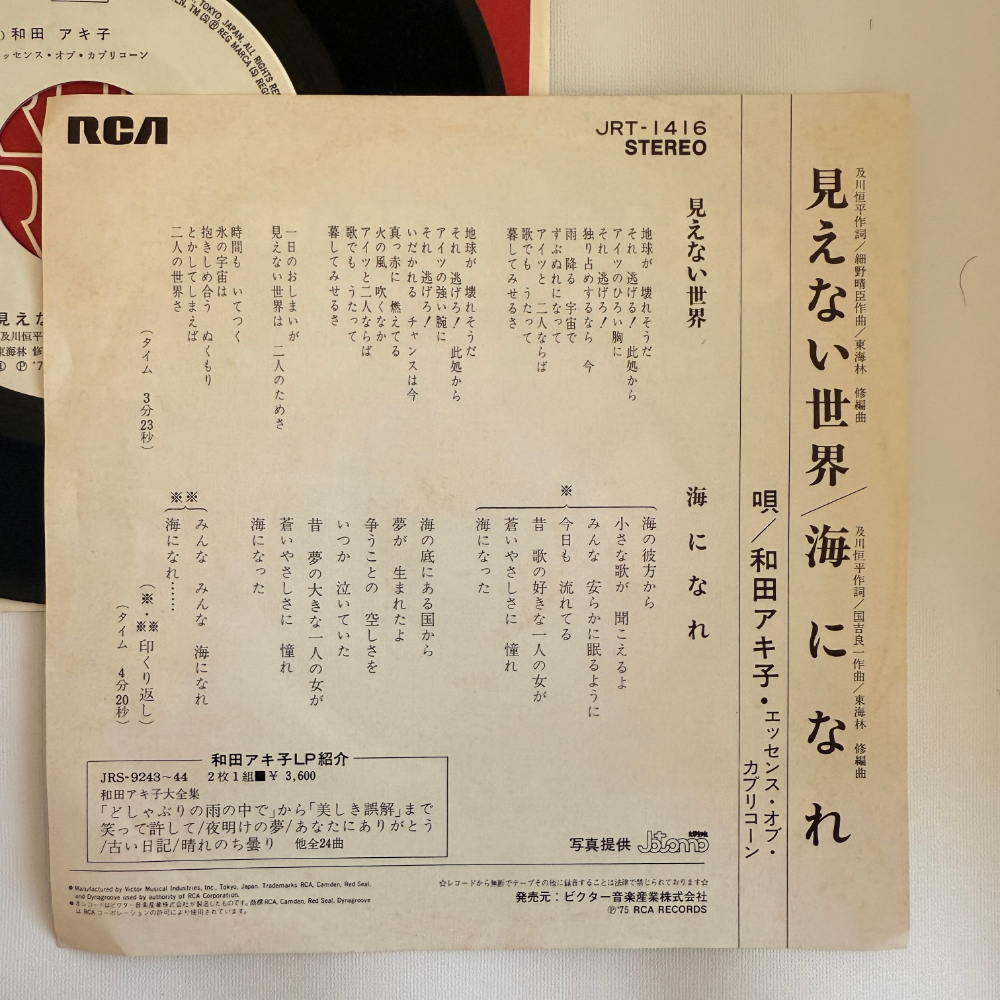 和田 アキ子
ッセンス・オブ・カプリコーン
TOKYO, JAPAN. ALL RIGHTS RE
REG MARCA (S) REG
見えな
及川恒平
東海林 修
RCA
JRT-1416
STEREO
及川恒平作詞/細野晴臣作曲/東海林 修編曲
見えない世界/海になれ
及川恒平作詞/国吉良一作曲/東海林 修編曲
唄/和田アキ子・エッセンス・オブ・
カプリコーン
見えない世界
地球が 壊れそうだ
それ 逃げる! 此処から
アイツのひろい胸に
それ 逃げろ!
独り占めするなら 今
雨 降る 宇宙で
ずぶぬれになって
アイツと 二人ならば
歌でも うたって
暮してみせるさ
地球が 壊れそうだ
それ 逃げろ! 此処から
アイツの強い腕に
それ 逃げろ!
いだかれる チャンスは今
真っ赤に 燃えてる
火の風 吹くなか
アイツと二人ならば
歌でも うたって
暮してみせるさ
一日のおしまいが
見えない世界は 二人のためさ
時間も いてつく
氷の宇宙は
抱きしめ合う ぬくもり
とかしてしまえば
二人の世界さ
(タイム 3分23秒)
海になれ
※
海の彼方から
小さな歌が 聞こえるよ
みんな 安らかに眠るように
今日も 流れてる
昔 歌の好きな一人の女が
蒼いやさしさに 憧れ
海になった
海の底にある国から
夢が 生まれたよ
争うことの 空しさを
いつか 泣いていた
昔 夢の大きな一人の女が
蒼いやさしさに 憧れ
海になった
※※
みんな みんな 海になれ
海になれ……
(※・※※印くり返し)
(タイム 4分20秒)
和田アキ子LP紹介
JRS-9243~44 2枚1組■¥ 3,600
和田アキ子大全集
「どしゃぶりの雨の中で」から「美しき誤解」まで
笑って許して/夜明けの夢/あなたにありがとう
/古い日記/晴れのち曇り 他全24曲
写真提供
●Manufactured by Victor Musical Industries, Inc., Tokyo, Japan. Trademarks RCA, Camden, Red Seal,
and Dynagroove used by authority of RCA Corporation.
●本レコードはビクター音楽産業株式会社が製造したものです。商標RCA, Camden, Red Seal, Dynagroove
は RCA コーポレーションの許可により使用されています。
☆レコードから無断でテープその他に録音することは法律で禁じられております☆
発売元:ビクター音楽産業株式会社
Ⓟ'75 RCA RECORDS